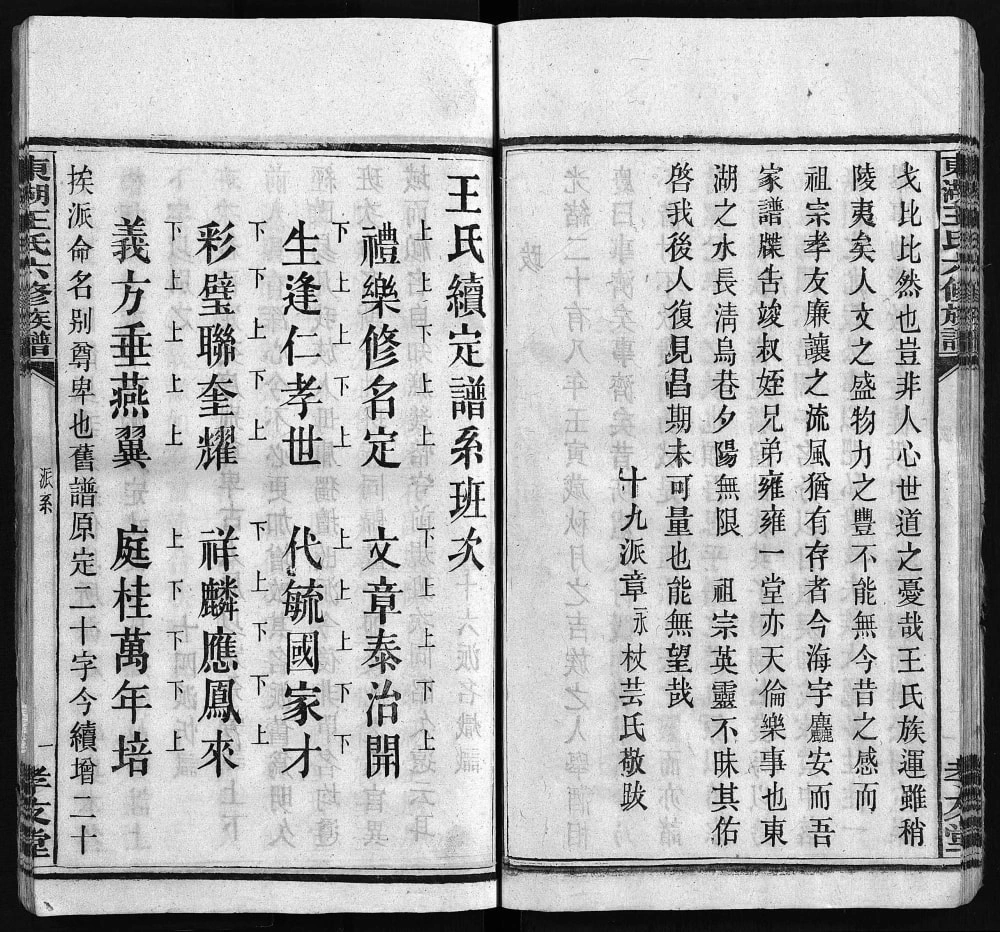 東湖王氏六修族譜
孝友堂
戈比比然也豈非人心世道之憂哉王氏族運雖稍
陵夷矣人文之盛物力之豐不能無今昔之感而
祖宗孝友廉讓之流風猶有存者今海宇麤安而吾
家譜牒告竣叔姪兄弟雍雍一堂亦天倫樂事也東
湖之水長淸烏巷夕陽無限 祖宗英靈不昧其佑
啓我後人復見昌期未可量也能無望哉
十九派章永杖芸氏敬跋
王氏續定譜系班次
禮樂修名定 文章泰治開
生逢仁孝世 代毓國家才
彩璧聯奎耀 祥麟應鳳來
義方垂燕翼 庭桂萬年培
挨派命名别尊卑也舊譜原定二十字今續增二十
東湖王氏六修族譜
派系
一
孝友堂